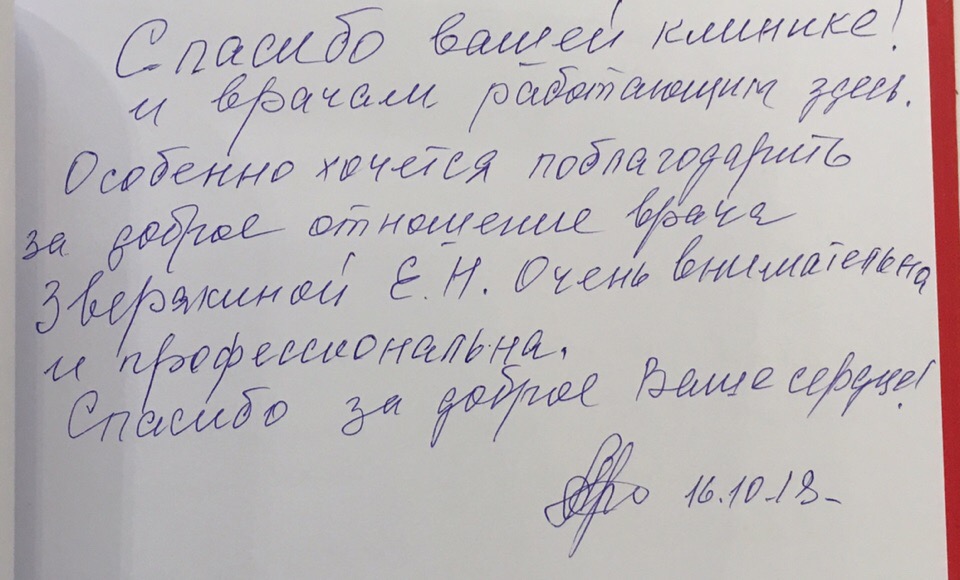 Спасибо вашей клинике!
и врачам работающим здесь.
Особенно хочется поблагодарить
за доброе отношение врача
Зверякиной Е.Н. Очень внимательна
и профессиональна.
Спасибо за доброе Ваше сердце!
16.10.18